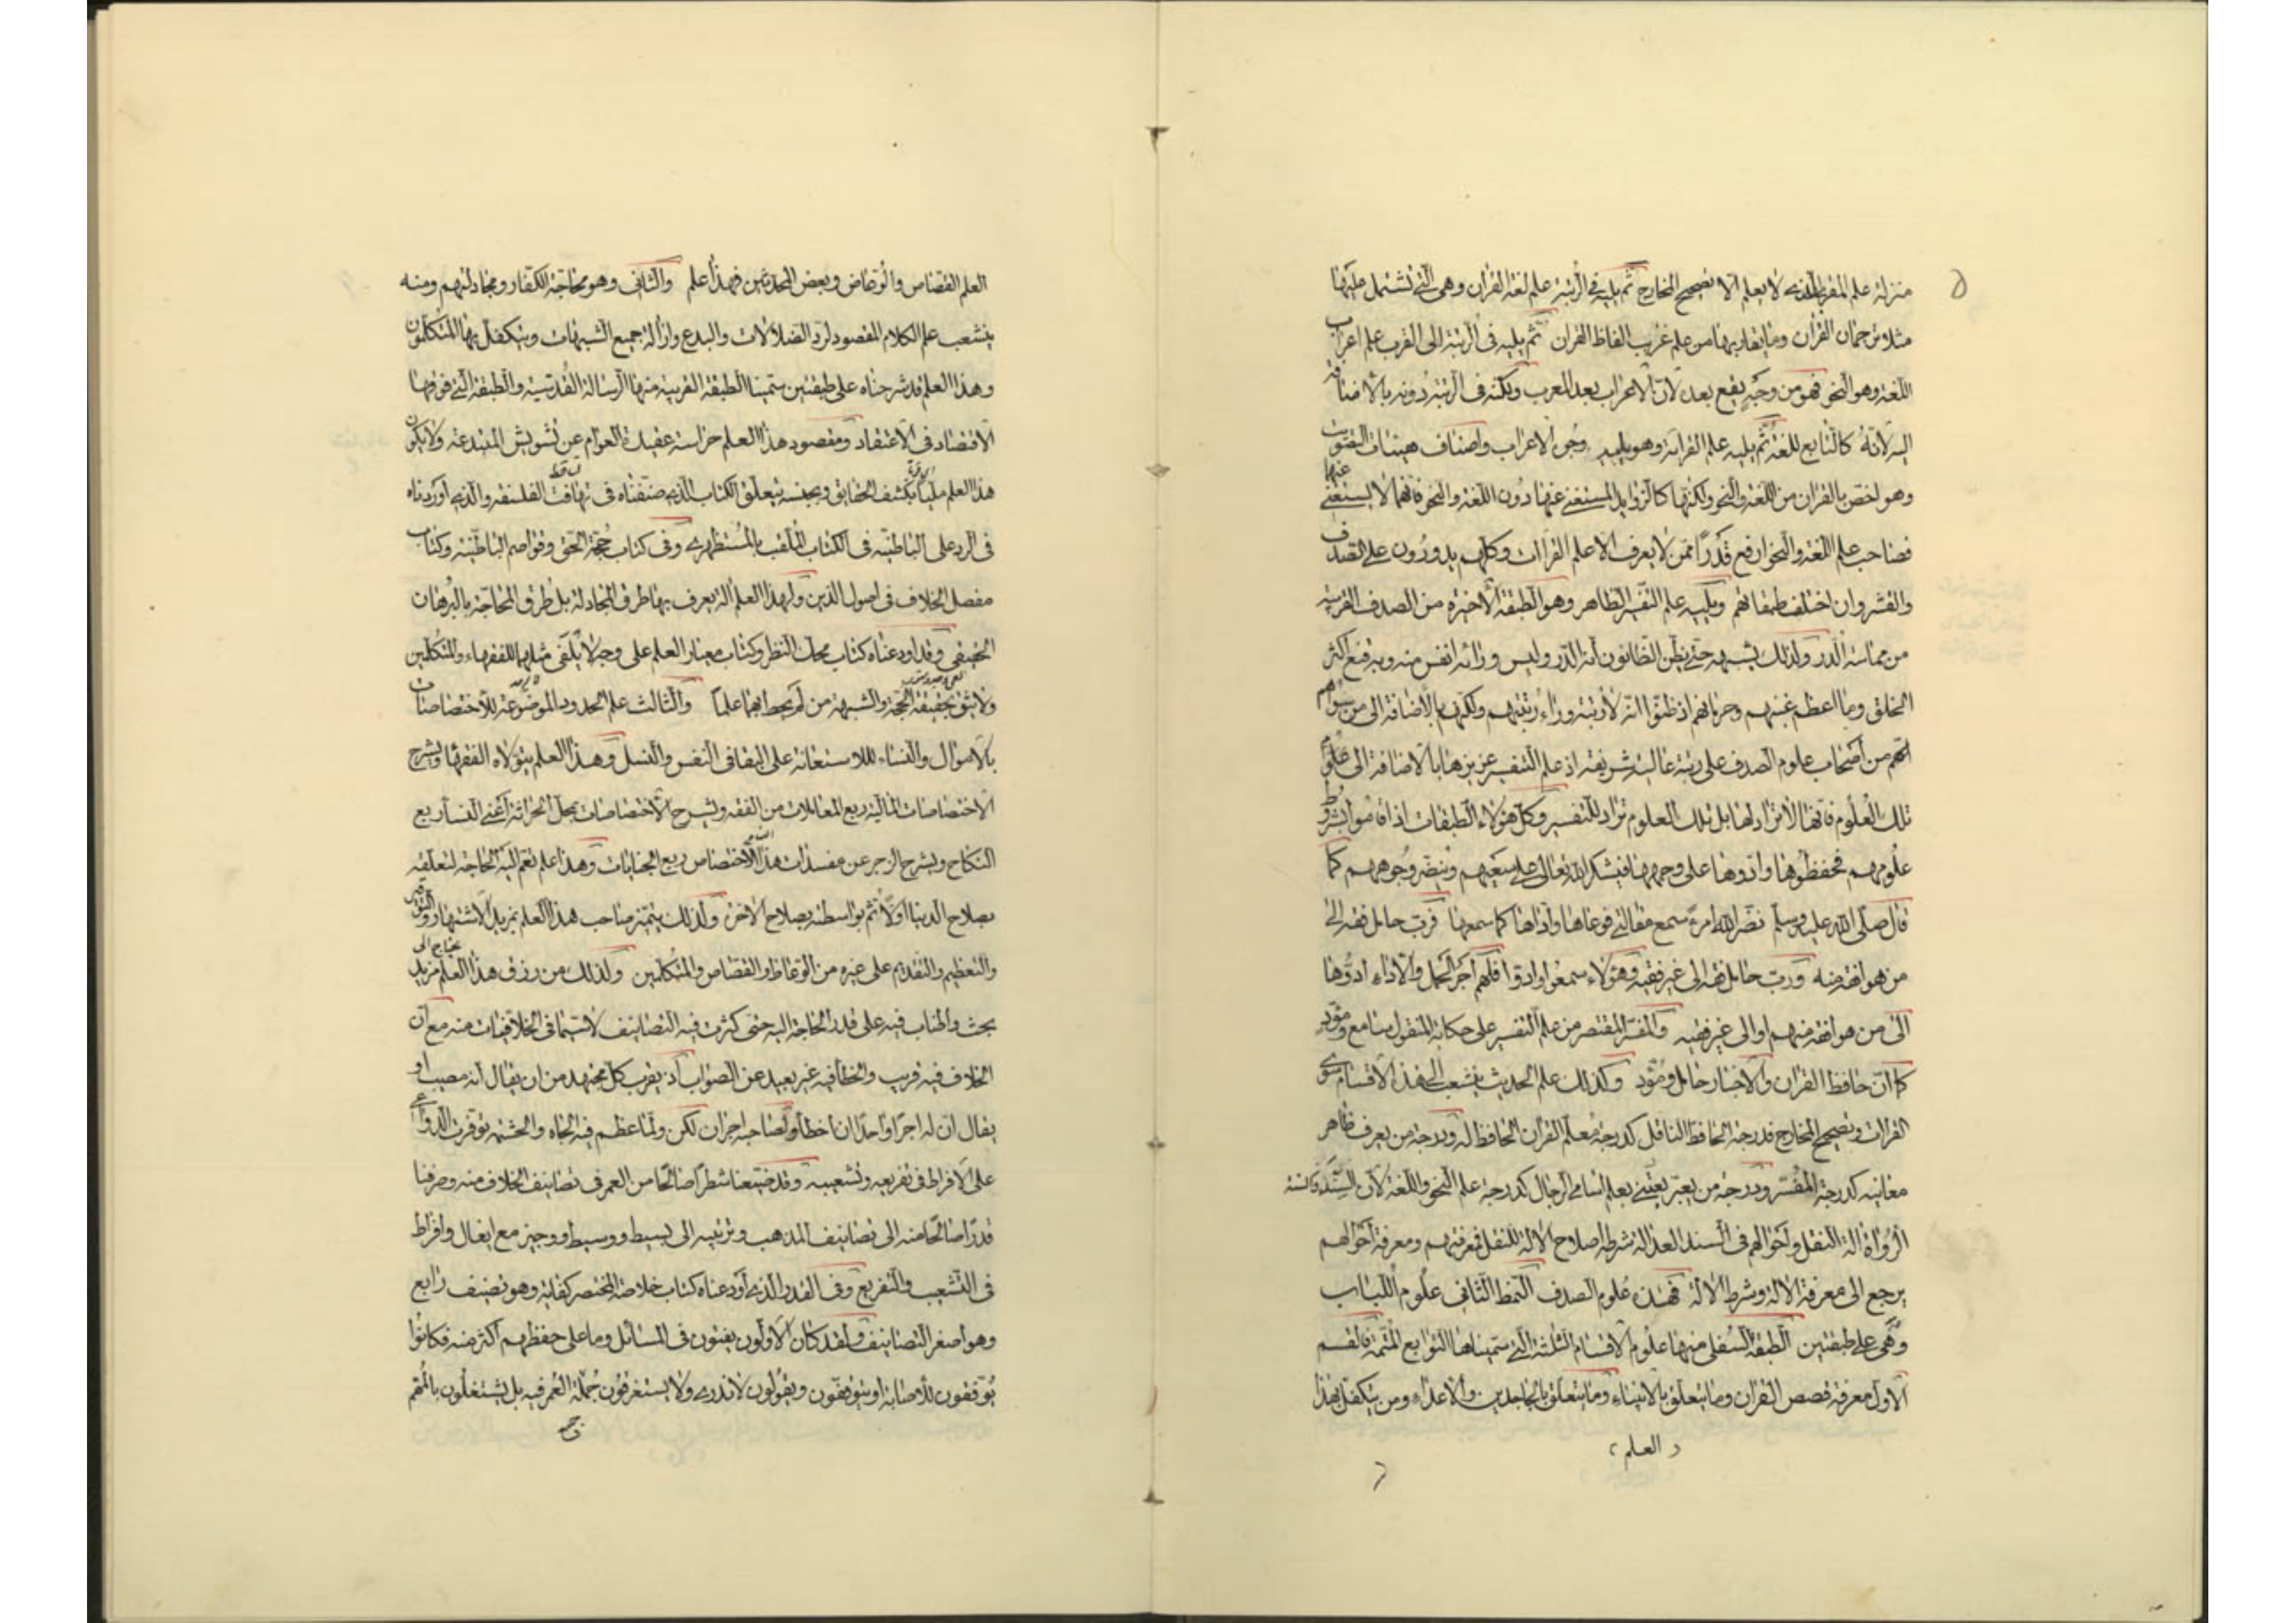 منزلة علم المقرى الذى لا يعلم الا تصحيح المخارج ثم يليه فى الرتبة علم لغة القران وهى التى تشتمل عليها
مثلا ترجمان القران وما يقاربها من علم غريب الفاظ القران ثم يليه فى الرتبة الى القرب علم اعراب
اللغة وهو النحو فهو من وجه يقع بعده لان الاعراب بعد المعرب ولكنه فى الرتبة دونه بالاضافة
اليه لانه كالتابع للغة ثم يليه علم القراة وهو يليه وجوه الاعراب واصناف هيئات التصويت
وهو اخص بالقران من اللغة والنحو ولكنها كالزوايد المستغنى عنها دون اللغة والنحو فانهما لا يستغنى عنها
فصاحب علم اللغة والنحو ارفع قدرا ممن لا يعرف الا علم القراات وكلهم يدورون على الصدف
والقشر وان اختلف طبقاتهم ويليه علم التفسير الظاهر وهو الطبقة الاخيرة من الصدف القريبة
من مماسة الدر ولذلك يشتبه به حتى يظن الظانون انه الدر وليس وراءه انفس منه وبه قنع اكثر
الخلق وما اعظم غبنهم وحرمانهم اذ ظنوا انه لا رتبة وراء رتبتهم ولكنهم بالاضافة الى من سواهم
من اصحاب علوم الصدف على رتبة عالية شريفة اذ علم التفسير عزيزها بالاضافة الى علوم
تلك العلوم فانها لا تراد لها بل تلك العلوم تراد للتفسير وكل هؤلاء الطبقات اذا قاموا بشروط
علومهم فحفظوها وادوها على وجهها فيشكر الله تعالى على سعيهم وينضر وجوههم كما
قال صلى الله عليه وسلم نضر الله امرء سمع مقالتى فوعاها واداها كما سمعها فرب حامل فقه الى
من هو افقه منه ورب حامل فقه الى غير فقيه وهؤلاء سمعوا وادوا فلهم اجر الحمل والاداء ادوها
الى من هو افقه منهم او الى غير فقيه والمفسر المقتصر من علم التفسير على حكاية المنقول سامع ومؤد
كما ان حافظ القران والاخبار حامل ومؤد وكذلك علم الحديث ينشعب الى هذه الاقسام سوى
القرات وتصحيح المخارج فدرجة الحافظ الناقل كدرجة معلم القران الحافظ له ودرجة من يعرف ظاهر
معانيه كدرجة المفسر ودرجة من يعتنى بعلم اسامى الرجال كدرجة علم النحو واللغة لان السند
الرواة الة النقل واحوالهم فى السند العدالة شرط صلاح الالة للنقل فمعرفتهم ومعرفة احوالهم
يرجع الى معرفة الالة وشرط الالة فهذه علوم الصدف النمط الثانى علوم اللباب
وهى على طبقتين الطبقة السفلى منها علوم الاقسام الثلثة التى سميناها التوابع المتمة فالقسم
الاول معرفة قصص القران وما يتعلق بالانبياء وما يتعلق بالجاحدين والاعداء ومن يتكفل بهذا
العلم
العلم القصاص والوعاظ وبعض المحدثين فهذا علم والثانى وهو محاجة الكفار ومجادلتهم ومنه
ينشعب علم الكلام المقصود لرد الضلالات والبدع وازالة جميع الشبهات ويتكفل بها المتكلمون
وهذا العلم قد شرحناه على طبقتين سمينا الطبقة القريبة منها الرسالة القدسية والطبقة التى فوقها
الاقتصاد فى الاعتقاد ومقصود هذا العلم حراسة عقيدة العوام عن تشويش المبتدعة ولا يكون
هذا العلم مليا بكشف الحقايق وبجنسه يتعلق الكتاب الذى صنفناه فى تهافت الفلسفة والذى اوردناه
فى الرد على الباطنية فى الكتاب الملقب بالمستظهرى وفى كتاب حجة الحق وقواصم الباطنية وكتاب
مفصل الخلاف فى اصول الدين ولهذا العلم الة يعرف بها طرق المجادلة بل طرق المحاجة بالبرهان
الحقيقى وقد اودعناه كتاب محك النظر وكتاب معيار العلم على وجه لا يلقى مثلها للفقهاء والمتكلمين
ولا يثق بحقيقة الحجة والشبهة من لم يحط بهما علما والثالث علم الحدود الموضوعة للاختصاصات
بالاموال والنساء للاستعانة على البقا فى النفس والنسل وهذا العلم يتولاه الفقها ويشرح
الاختصاصات المالية ربع المعاملات من الفقه ويشرح الاختصاصات بمحل الحراثة اعنى النسا ربع
النكاح ويشرح الزجر عن مفسدات هذه الاختصاص ربع الجنايات وهذا علم تعم اليه الحاجة لتعلقه
بصلاح الدنيا اولا ثم بواسطته بصلاح الاخرة ولذلك يتميز صاحب هذا العلم بمزيد الاشتهار والتوقير
والتعظيم والتقديم على غيره من الوعاظ والقصاص والمتكلمين ولذلك من رزق هذا العلم يحتاج الى مزيد
بحث واطناب فيه على قدر الحاجة اليه حتى كثرت فيه التصانيف لا سيما فى الخلافيات منه مع ان
الخلاف فيه قريب والخطأ فيه غير بعيد عن الصواب اذ يقرب كل مجتهد من ان يقال انه مصيب او
يقال ان له اجرا واحدا ان اخطأ ولصاحبه اجران لكن ولما عظم فيه الجاه والحشمة توفرت الدواعى
على الافراط فى تفريعه وتشعيبه وقد ضيعنا شطرا صالحا من العمر فى تصانيف الخلاف منه وصرفنا
قدرا صالحا منه الى تصانيف المذهب وترتيبه الى بسيط ووسيط ووجيز مع ايغال وافراط
فى التشعيب والتفريع وفى القدر الذى اودعناه كتاب خلاصة المختصر كفاية وهو تصنيف رابع
وهو اصغر التصانيف ولقد كان الاولون يفتون فى المسائل وما على حفظهم اكثر منه فكانوا
يوفقون للاصابة او يتوقفون ويقولون لا ندرى ولا يستغرقون جملة العمر فيه بل يشتغلون بالمهم